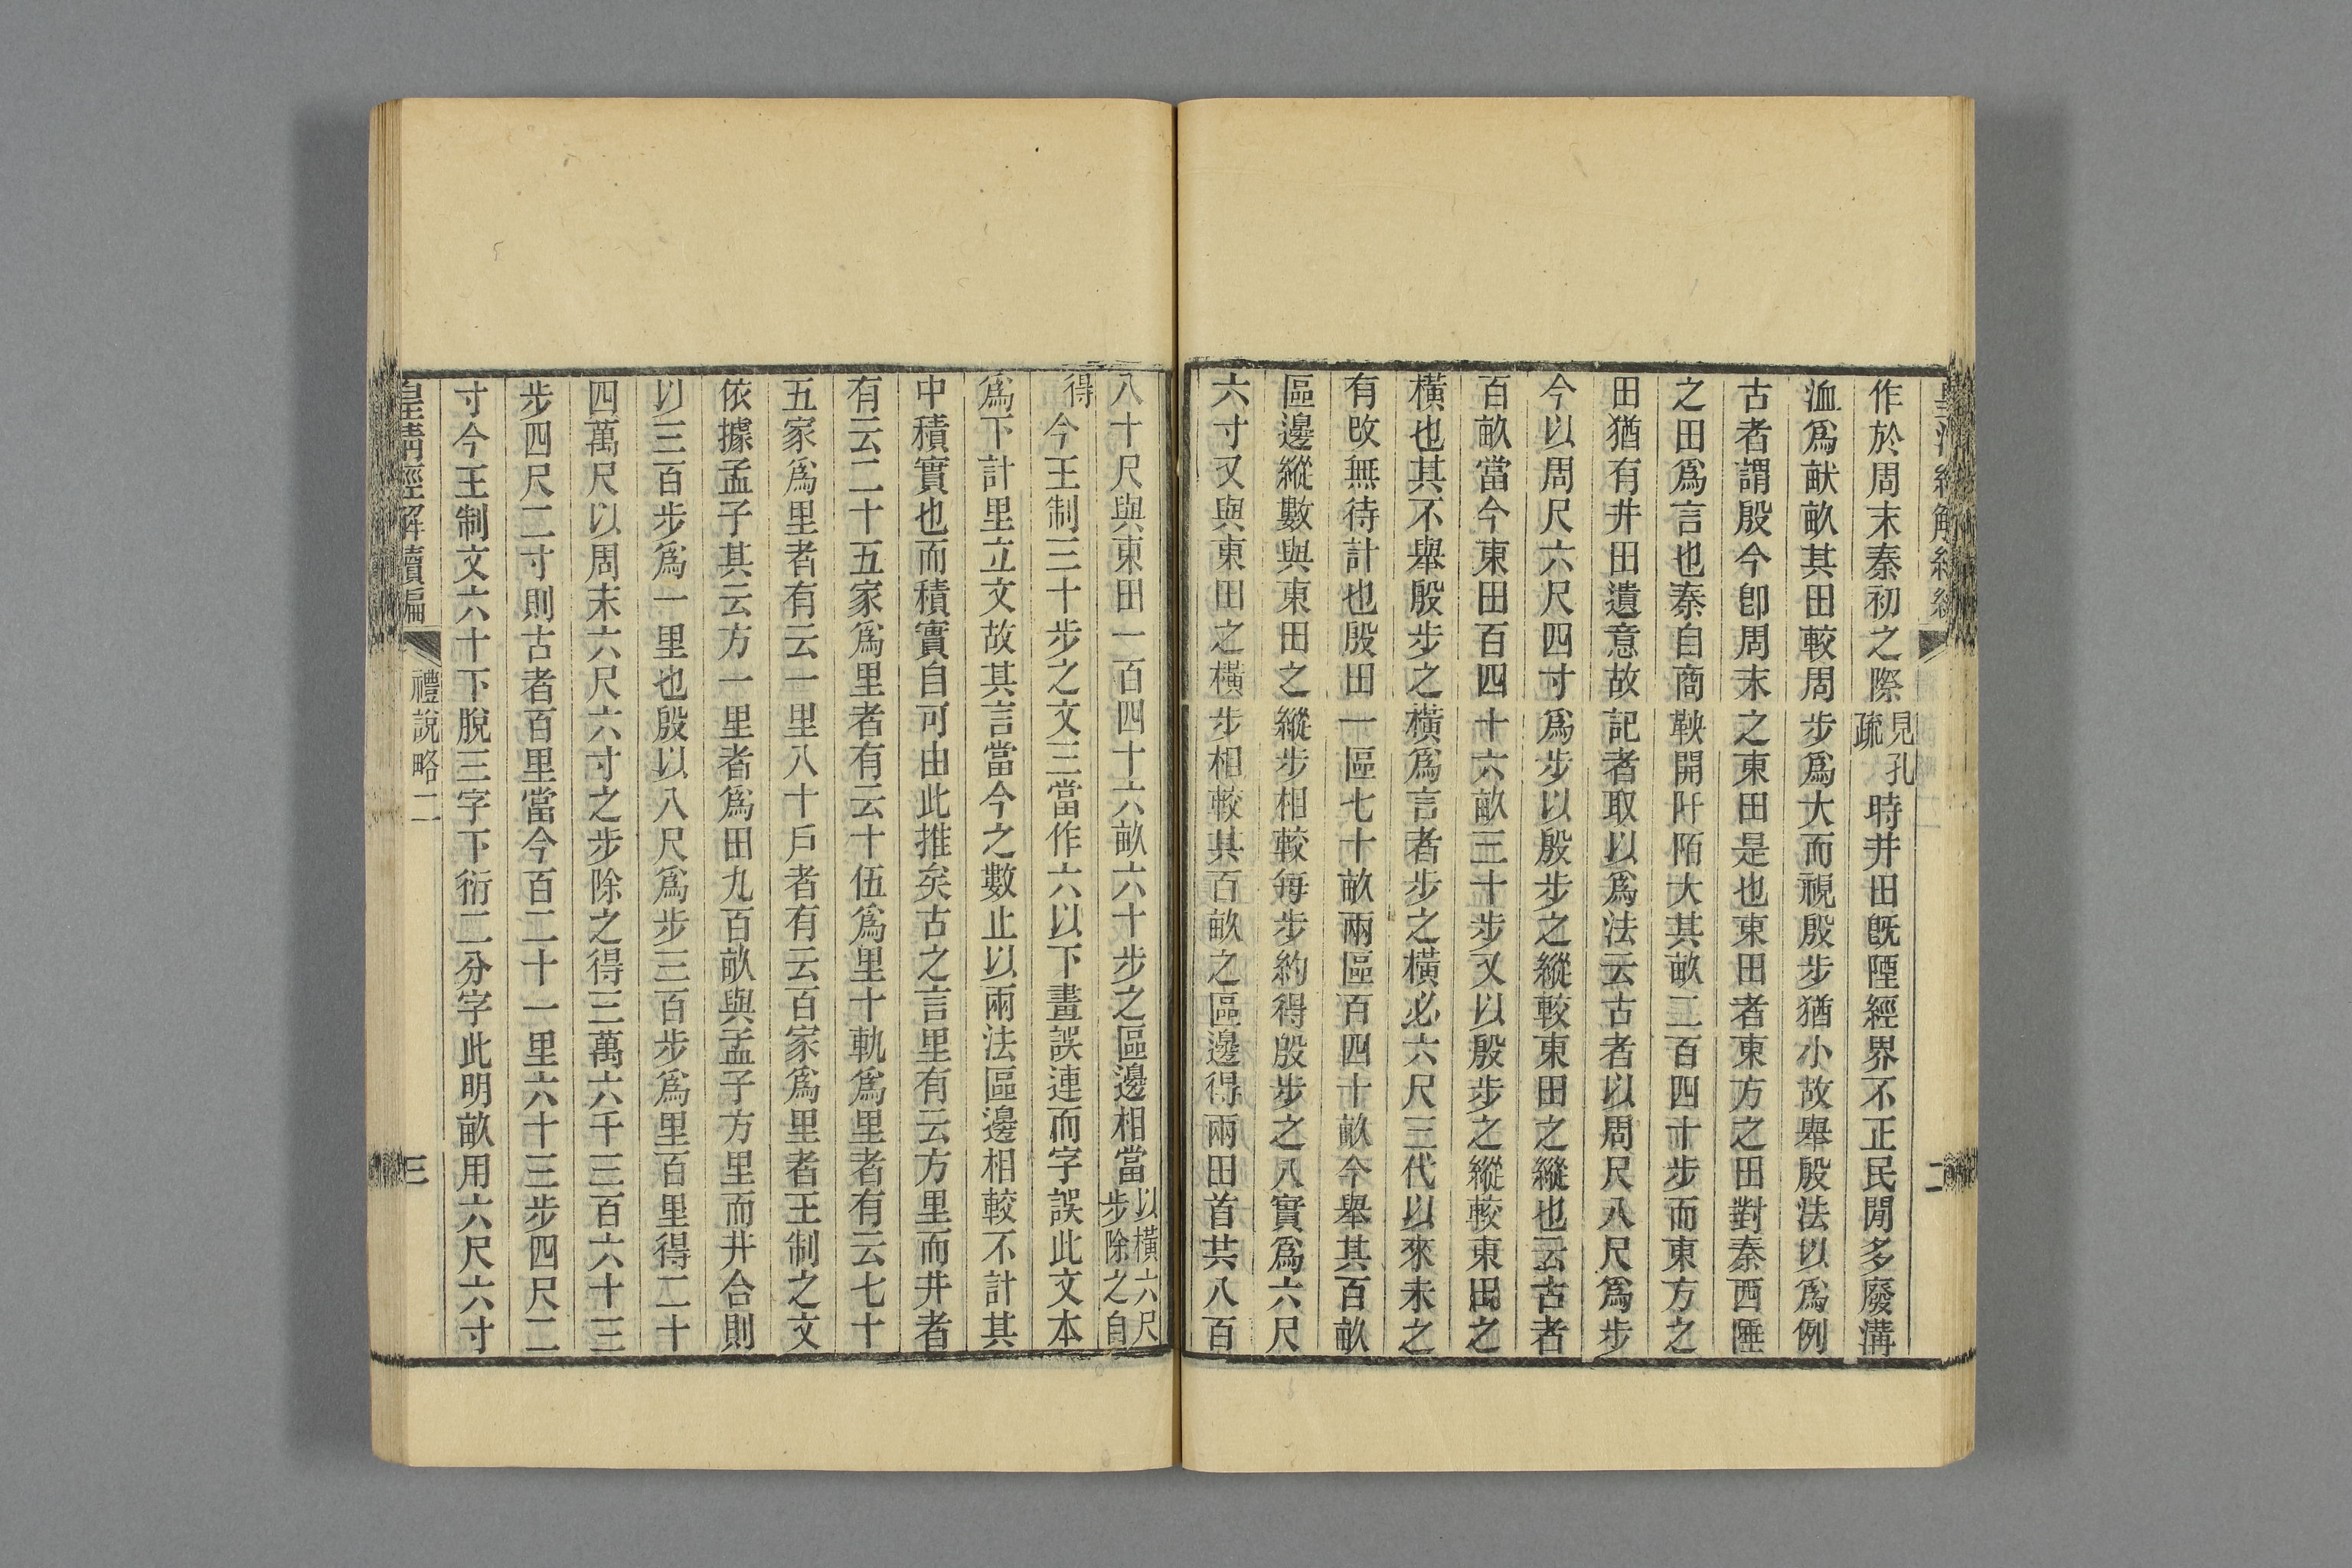 作於周末秦初之際見孔疏時井田旣陻經界不正民閒多廢溝
洫爲畎畝其田較周步爲大而視殷步猶小故舉殷法以爲例
古者謂殷今卽周末之東田是也東田者東方之田對秦西陲
之田爲言也秦自商鞅開阡陌大其畝二百四十步而東方之
田猶有井田遺意故記者取以爲法云古者以周尺八尺爲步
今以周尺六尺四寸爲步以殷步之縱較東田之縱也云古者
百畝當今東田百四十六畝三十步又以殷步之縱較東田之
橫也其不舉殷步之橫爲言者步之橫必六尺三代以來未之
有改無待計也殷田一區七十畝兩區百四十畝今舉其百畝
區邊縱數與東田之縱步相較每步約得殷步之八實爲六尺
六寸又與東田之橫步相較其百畝之區邊得兩田首共八百
八十尺與東田一百四十六畝六十步之區邊相當以橫六尺步除之自
得今王制三十步之文三當作六以下畫誤連而字誤此文本
爲下計里立文故其言當今之數止以兩法區邊相較不計其
中積實也而積實自可由此推矣古之言里有云方里而井者
有云二十五家爲里者有云十伍爲里十軌爲里者有云七十
五家爲里者有云一里八十戶者有云百家爲里者王制之文
依據孟子其云方一里者爲田九百畝與孟子方里而井合則
以三百步爲一里也殷以八尺爲步三百步爲里百里得二十
四萬尺以周末六尺六寸之步除之得三萬六千三百六十三
步四尺二寸則古者百里當今百二十一里六十三步四尺二
寸今王制文六十下脫三字下衍二分字此明畝用六尺六寸
皇淸經解續編
禮說略二
三
二